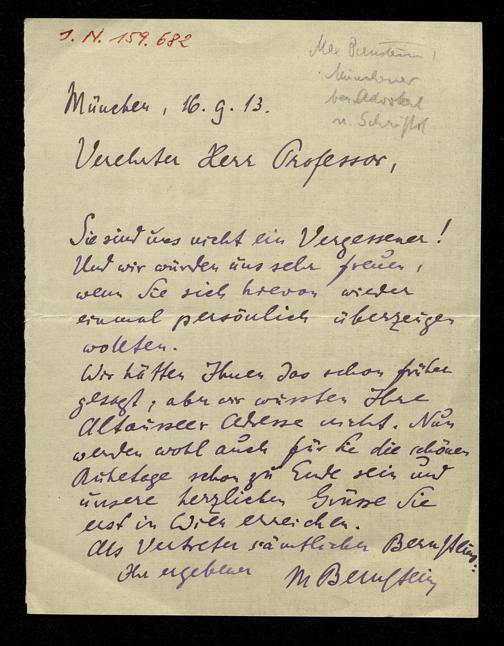 J. N. 159.682
Max Bernstein,
Münchner
ber. Advokat
u. Schriftst
München, 16. 9. 13.
Verehrter Herr Professor,
Sie sind uns nicht ein Vergessener!
Und wir würden uns sehr freuen,
wenn Sie sich hievon wieder
einmal persönlich überzeugen
wollten.
Wir hätten Ihnen das schon früher
gesagt, aber wir wussten Ihre
Altausseer Adresse nicht. Nun
werden wohl auch für Sie die schönen
Ruhetage schon zu Ende sein und
unsere herzlichen Grüsse Sie
erst in Wien erreichen.
Als Vertreter sämtlicher Bernsteins:
Ihr ergebener M Bernstein